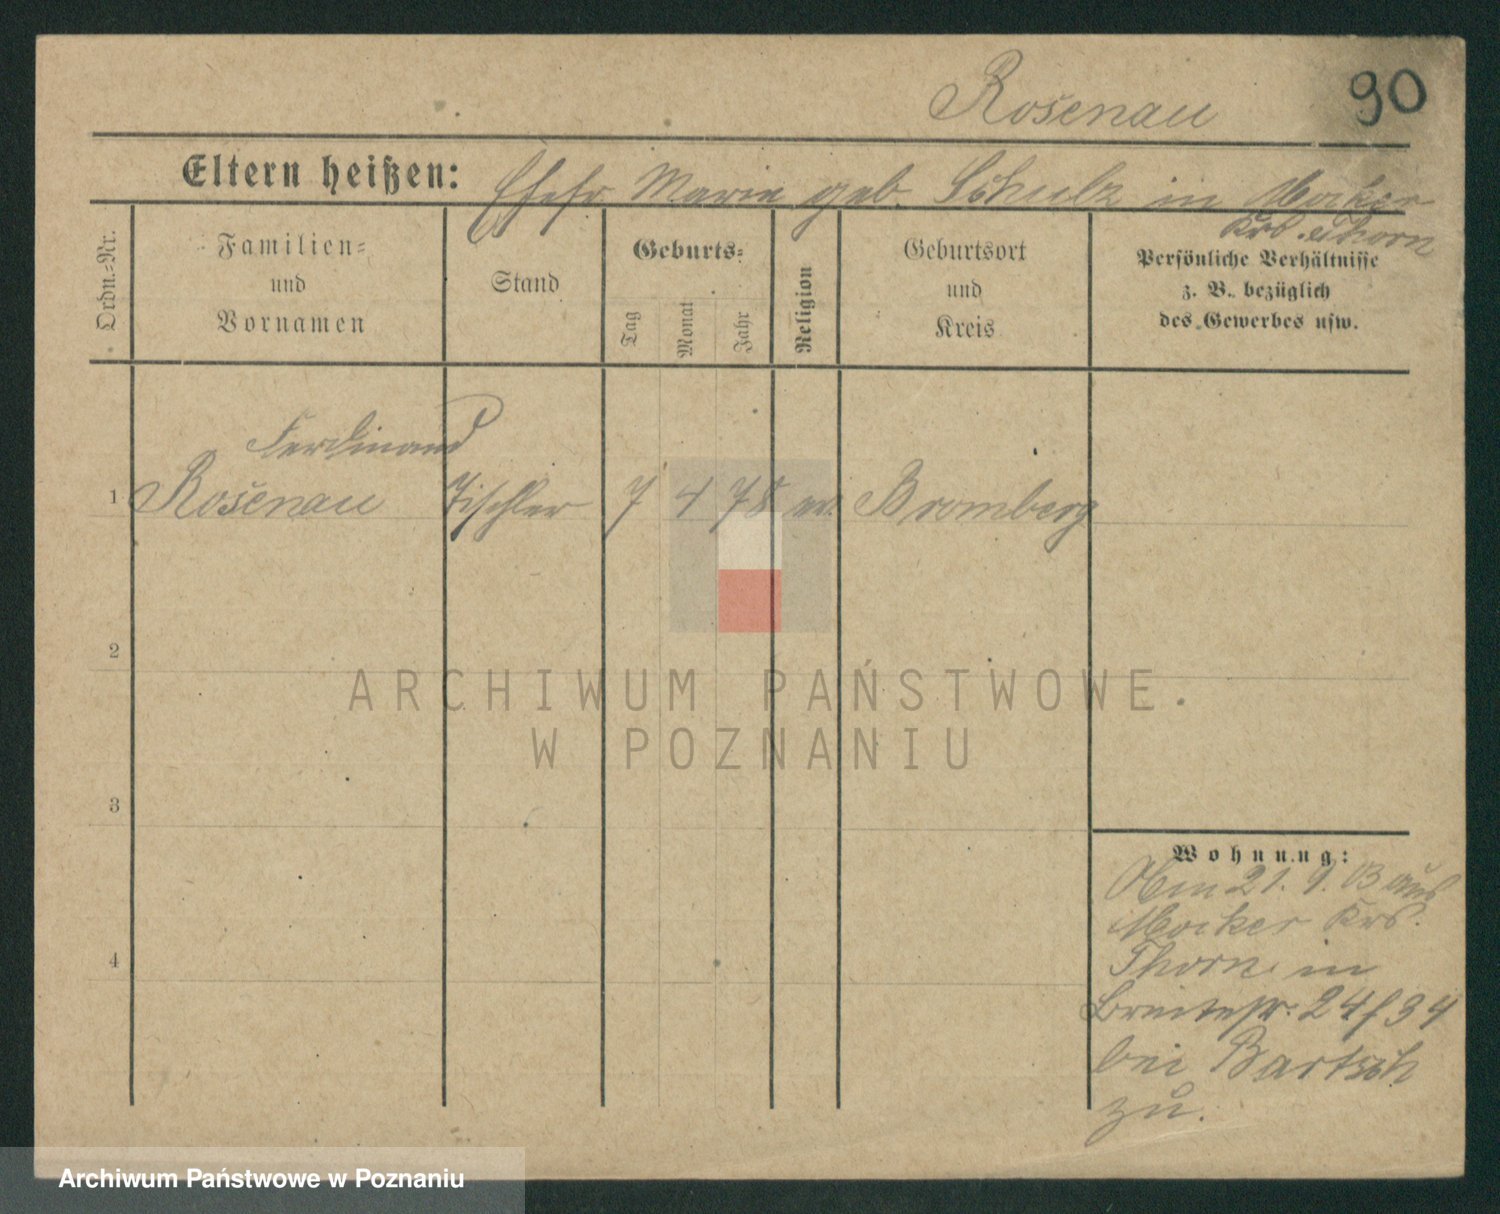 Rosenau 90
Eltern heißen: Ehefr Marie geb. Schulz in Mocker
Krs. Thorn
Ordn.=Nr.
Familien=
und
Vornamen
Stand
Geburts=
Tag
Monat
Jahr
Religion
Geburtsort
und
Kreis
Persönliche Verhältnisse
z. B. bezüglich
des Gewerbes usw.
Ferdinand
1 Rosenau Tischler 7 4 78 ev. Bromberg
2
3
4
ARCHIWUM PAŃSTWOWE
W POZNANIU
Wohnung:
Am 21. 9. 03 aus
Mocker Krs.
Thorn in
Breitestr. 24/34
bei Bartsch
zu.
Archiwum Państwowe w Poznaniu